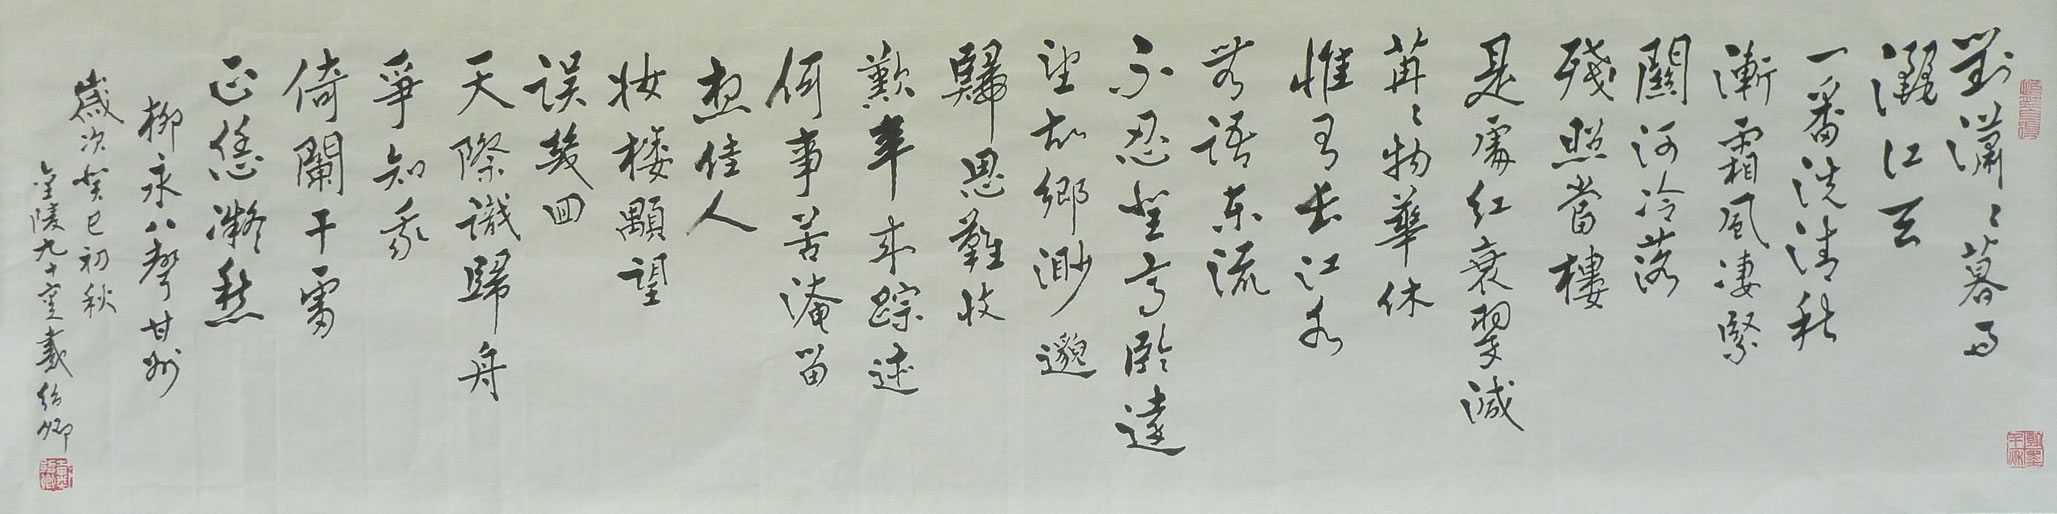 對瀟〻暮雨
灑江天
一番洗清秋
漸霜風凄緊
關河冷落
殘照當樓
是處紅衰翠減
苒〻物華休
惟有長江水
無語東流
不忍登高臨遠
望故鄉渺邈
歸思難收
歎年來踪迹
何事苦淹留
想佳人
妝樓顒望
误幾回
天際識歸舟
爭知我
倚闌干處
正恁凝愁
柳永八聲甘州
歲次癸巳初秋
金陵九十叟戴